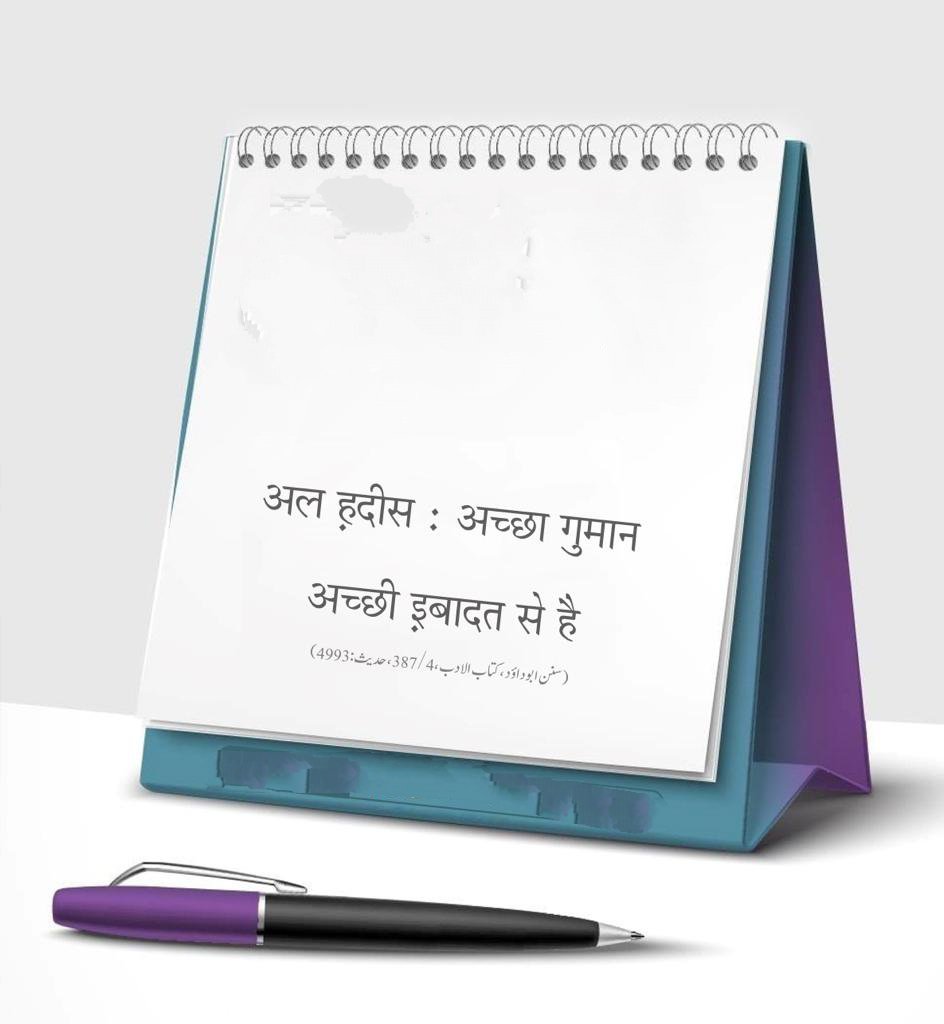 अल ह़दीस : अच्छा गुमान
अच्छी इ़बादत से है
(سنن ابوداؤد، کتاب الادب، 387/4، حدیث:4993)